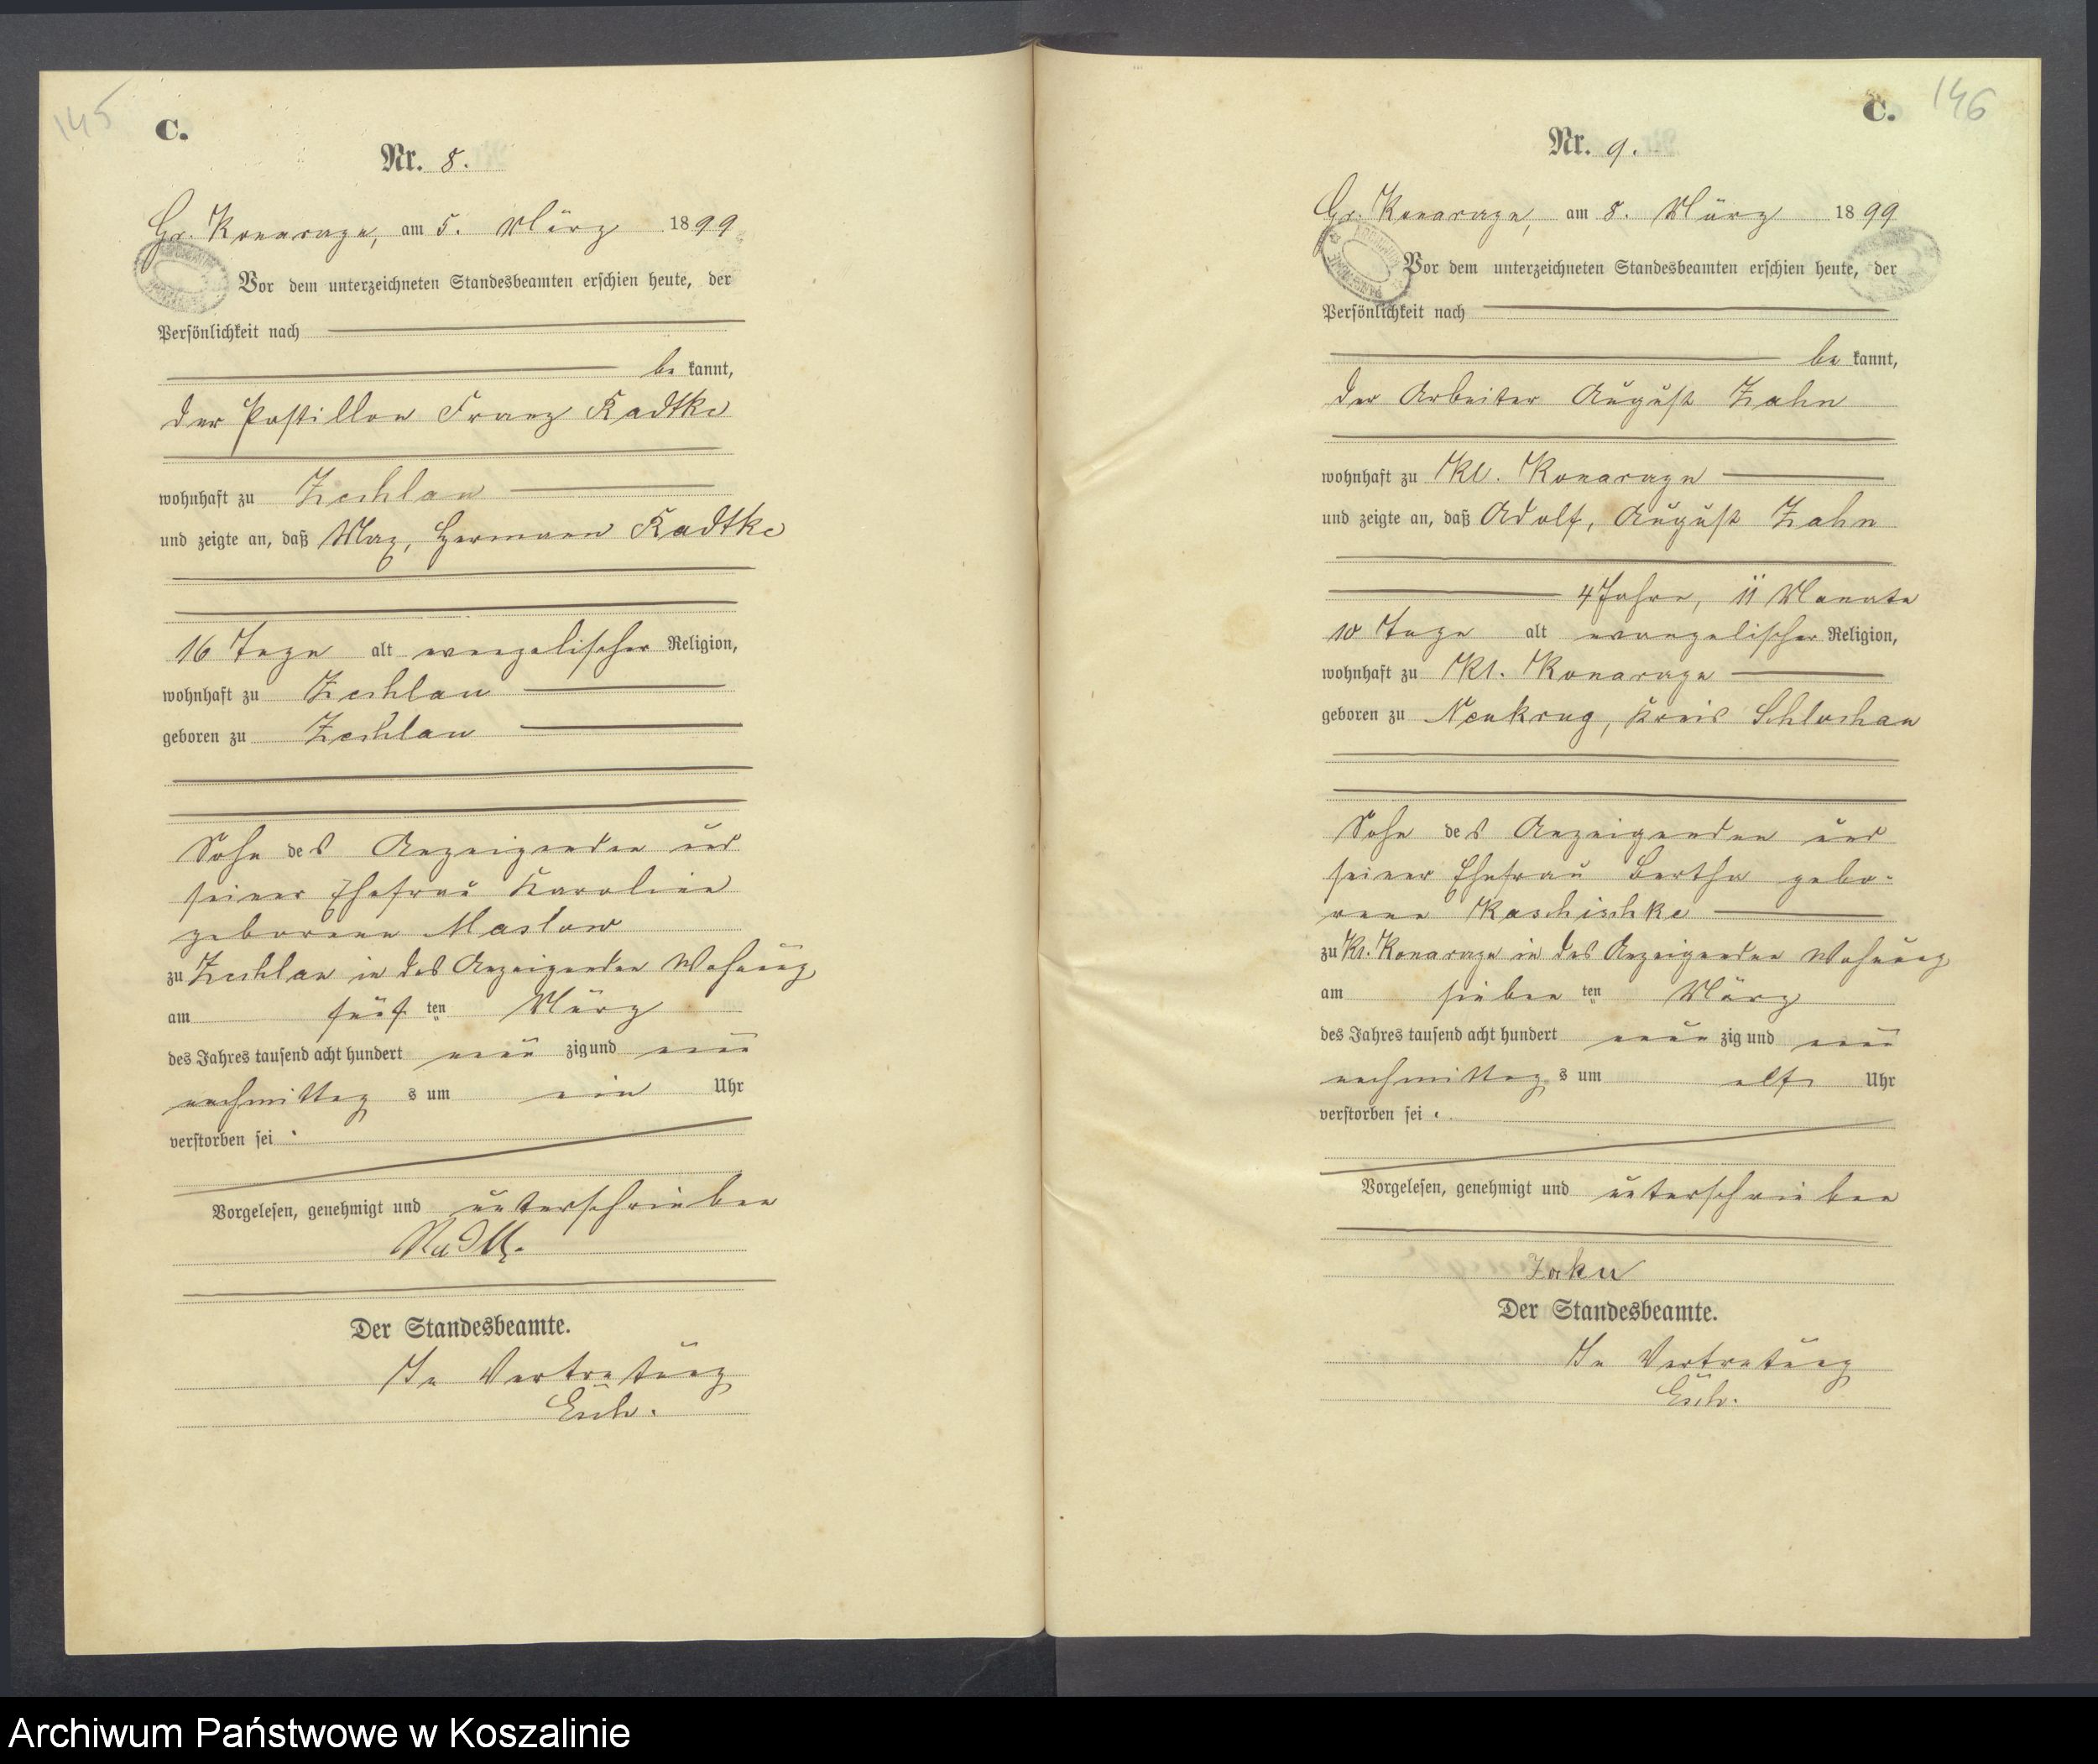 145
C.
Nr. 8.
Gr. Konarzyn, am 5. März 1899
Vor dem unterzeichneten Standesbeamten erschien heute, der
Persönlichkeit nach
be kannt,
der Postillon Franz Radtke
wohnhaft zu Zechlau
und zeigte an, daß Max, Hermann Radtke
16 Tage alt evangelischer Religion,
wohnhaft zu Zechlau
geboren zu Zechlau
Sohn des Anzeigenden und
seiner Ehefrau Karoline
geborenen Maslow
zu Zechlau in des Anzeigenden Wohnung
am fünf ten März
des Jahres tausend acht hundert neun zig und neun
nachmittag s um ein Uhr
verstorben sei.
Vorgelesen, genehmigt und unterschrieben
Der Standesbeamte.
In Vertretung
146
C.
Nr. 9.
Gr. Konarzyn, am 8. März 1899
Vor dem unterzeichneten Standesbeamten erschien heute, der
Persönlichkeit nach
be kannt,
der Arbeiter August Zahn
wohnhaft zu Kl. Konarzyn
und zeigte an, daß Adolf, August Zahn
4 Jahre, 11 Monate
10 Tage alt evangelischer Religion,
wohnhaft zu Kl. Konarzyn
geboren zu Neukrug, Kreis Schlochau
Sohn des Anzeigenden und
seiner Ehefrau Bertha gebo-
rene Kaschischke
zu Kl. Konarzyn in des Anzeigenden Wohnung
am sieben ten März
des Jahres tausend acht hundert neun zig und neun
nachmittag s um elf Uhr
verstorben sei.
Vorgelesen, genehmigt und unterschrieben
Der Standesbeamte.
In Vertretung
Archiwum Państwowe w Koszalinie